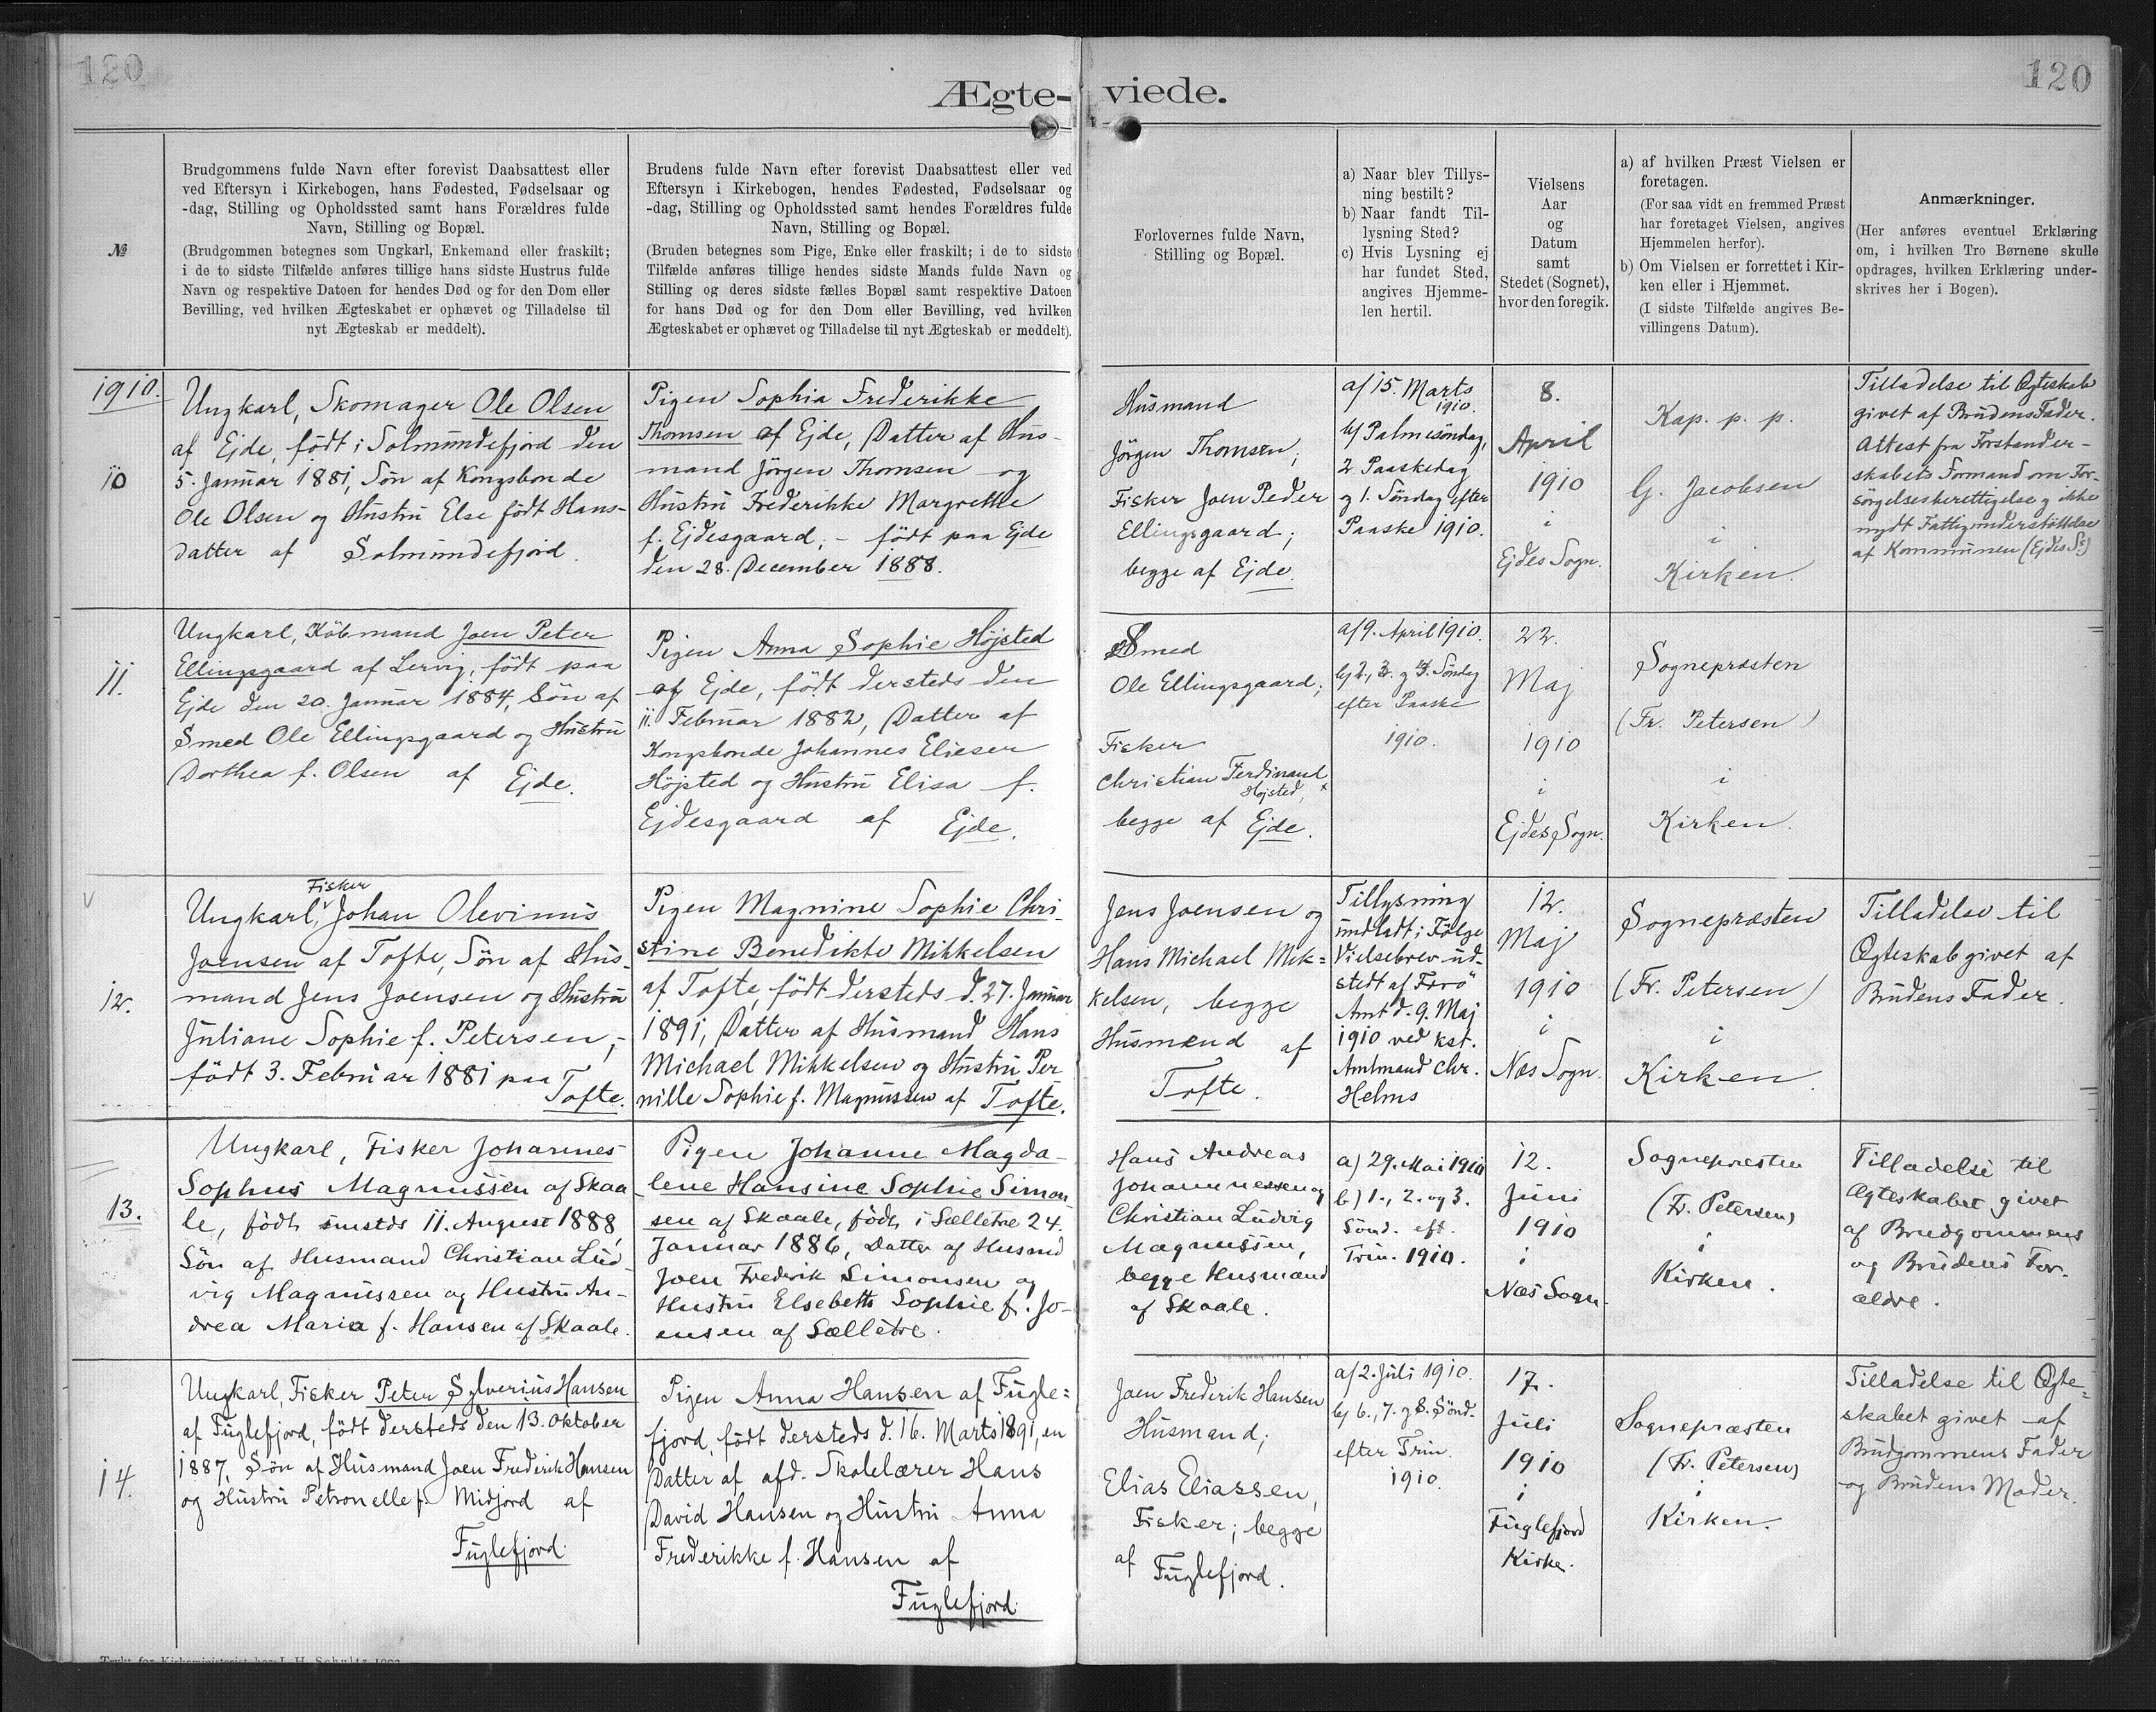 120
120
Ægte-viede.
№
Brudgommens fulde Navn efter forevist Daabsattest eller
ved Eftersyn i Kirkebogen, hans Fødested, Fødselsaar og
-dag, Stilling og Opholdssted samt hans Forældres fulde
Navn, Stilling og Bopæl.
(Brudgommen betegnes som Ungkarl, Enkemand eller fraskilt;
i de to sidste Tilfælde anføres tillige hans sidste Hustrus fulde
Navn og respektive Datoen for hendes Død og for den Dom eller
Bevilling, ved hvilken Ægteskabet er ophævet og Tilladelse til
nyt Ægteskab er meddelt).
Brudens fulde Navn efter forevist Daabsattest eller ved
Eftersyn i Kirkebogen, hendes Fødested, Fødselsaar og
-dag, Stilling og Opholdssted samt hendes Forældres fulde
Navn, Stilling og Bopæl.
(Bruden betegnes som Pige, Enke eller fraskilt; i de to sidste
Tilfælde anføres tillige hendes sidste Mands fulde Navn og
Stilling og deres sidste fælles Bopæl samt respektive Datoen
for hans Død og for den Dom eller Bevilling, ved hvilken
Ægteskabet er ophævet og Tilladelse til nyt Ægteskab er meddelt).
Forlovernes fulde Navn,
Stilling og Bopæl.
a) Naar blev Tillys-
ning bestilt?
b) Naar fandt Til-
lysning Sted?
c) Hvis Lysning ej
har fundet Sted,
angives Hjemme-
len hertil.
Vielsens
Aar
og
Datum
samt
Stedet (Sognet),
hvor den foregik.
a) af hvilken Præst Vielsen er
foretagen.
(For saa vidt en fremmed Præst
har foretaget Vielsen, angives
Hjemmelen herfor).
b) Om Vielsen er forrettet i Kir-
ken eller i Hjemmet.
(I sidste Tilfælde angives Be-
villingens Datum).
Anmærkninger.
(Her anføres eventuel Erklæring
om, i hvilken Tro Børnene skulle
opdrages, hvilken Erklæring under-
skrives her i Bogen).
1910.
10
Ungkarl, Skomager Ole Olsen
af Ejde, født i Solmundefjord den
5. Januar 1881, Søn af Kongsbonde
Ole Olsen og Hustru Else født Hans-
datter af Solmundefjord.
Pigen Sophia Frederikke
Thomsen af Ejde, Datter af Hus-
mand Jørgen Thomsen og
Hustru Frederikke Margrethe
f. Ejdesgaard, - født paa Ejde
den 28. December 1888.
Husmand
Jörgen Thomsen;
Fisker Joen Peder
Ellingsgaard;
begge af Ejde.
a/ 15. Marts
1910.
b/ Palmesöndag,
2. Paaskedag
og 1. Söndag efter
Paaske 1910.
8.
April
1910
i
Ejdes Sogn.
Kap. p. p.
G. Jacobsen
i
Kirken.
Tilladelse til Ægteskab
givet af Brudens Fader.
Attest fra Forstander-
skabets Formand om For-
sörgelsesberettigelse og ikke
nydt Fattigunderstöttelse
af Kommunen (Ejdes S.)
11.
Ungkarl, Köbmand Joen Peter
Ellingsgaard af Lervig, født paa
Ejde den 20. Januar 1884, Søn af
Smed Ole Ellingsgaard og Hustru
Dorthea f. Olsen af Ejde.
Pigen Anna Sophie Højsted
af Ejde, født dersteds den
11. Februar 1882, Datter af
Kongsbonde Johannes Elieser
Højsted og Hustru Elisa f.
Ejdesgaard af Ejde.
Smed
Ole Ellingsgaard;
Fisker
Christian Ferdinand
Højsted,
begge af Ejde.
a/ 9. April 1910.
b/ 2., 3. og 4. Söndag
efter Paaske
1910.
22.
Maj
1910
i
Ejdes Sogn.
Sognepræsten
(Fr. Petersen)
i
Kirken.
v
12.
Fisker
Ungkarl, Johan Olevinus
Joensen af Tofte, Søn af Hus-
mand Jens Joensen og Hustru
Juliane Sophie f. Petersen, -
født 3. Februar 1881 paa
Tofte.
Pigen Magnine Sophie Chri-
stine Benedikte Mikkelsen
af Tofte, født dersteds d. 27. Januar
1891, Datter af Husmand Hans
Michael Mikkelsen og Hustru Per
nille Sophie f. Magnussen af Tofte.
Jens Joensen og
Hans Michael Mik=
kelsen, begge
Husmænd af
Tofte.
Tillysning
undladt i Følge
Vielsebrev ud-
stedt af Færö
Amt d. 9. Maj
1910 ved kst.
Amtmand Chr.
Helms
12.
Maj
1910
i
Næs Sogn.
Sognepræsten
(Fr. Petersen)
i
Kirken.
Tilladelse til
Ægteskab givet af
Brudens Fader.
13.
Ungkarl, Fisker Johannes
Sophus Magnussen af Skaa
le, födt smstds 11. August 1888,
Sön af Husmand Christian Lud-
vig Magnussen og Hustru An-
drea Maria f. Hansen af Skaale.
Pigen Johanne Magda-
lene Hansine Sophie Simon
sen af Skaale, født i Sælletræ 24.
Januar 1886, Datter af Husmd
Joen Frederik Simonsen og
Hustru Elsebeth Sophie f. Jo-
ensen af Sælletræ.
Hans Andreas
Johannessen og
Christian Ludvig
Magnussen,
begge Husmænd
af Skaale.
a) 29. Mai 1910
b) 1., 2. og 3.
Sönd. eft.
Trin. 1910.
12.
Juni
1910
i
Næs Sogn.
Sognepræsten
(Fr. Petersen)
i
Kirken.
Tilladelse til
Ægteskabet givet
af Brudgommens
og Brudens For-
ældre.
14.
Ungkarl, Fisker Peter Sylverius Hansen
af Fuglefjord, født dersteds den 13. Oktober
1887, Søn af Husmand Joen Frederik Hansen
og Hustru Petronelle f. Midjord af
Fuglefjord.
Pigen Anna Hansen af Fugle=
fjord, født dersteds d. 16. Marts 1891, en
Datter af afd. Skolelærer Hans
David Hansen og Hustru Anna
Frederikke f. Hansen af
Fuglefjord.
Joen Frederik Hansen
Husmand;
Elias Eliassen,
Fisker; begge
af Fuglefjord.
a/ 2. Juli 1910.
b/ 6., 7. og 8. Sönd.
efter Trin.
1910.
17.
Juli
1910
i
Fuglefjord
Kirke.
Sognepræsten
(Fr. Petersen)
i
Kirken.
Tilladelse til Ægte=
skabet givet af
Brudgommens Fader
og Brudens Moder.